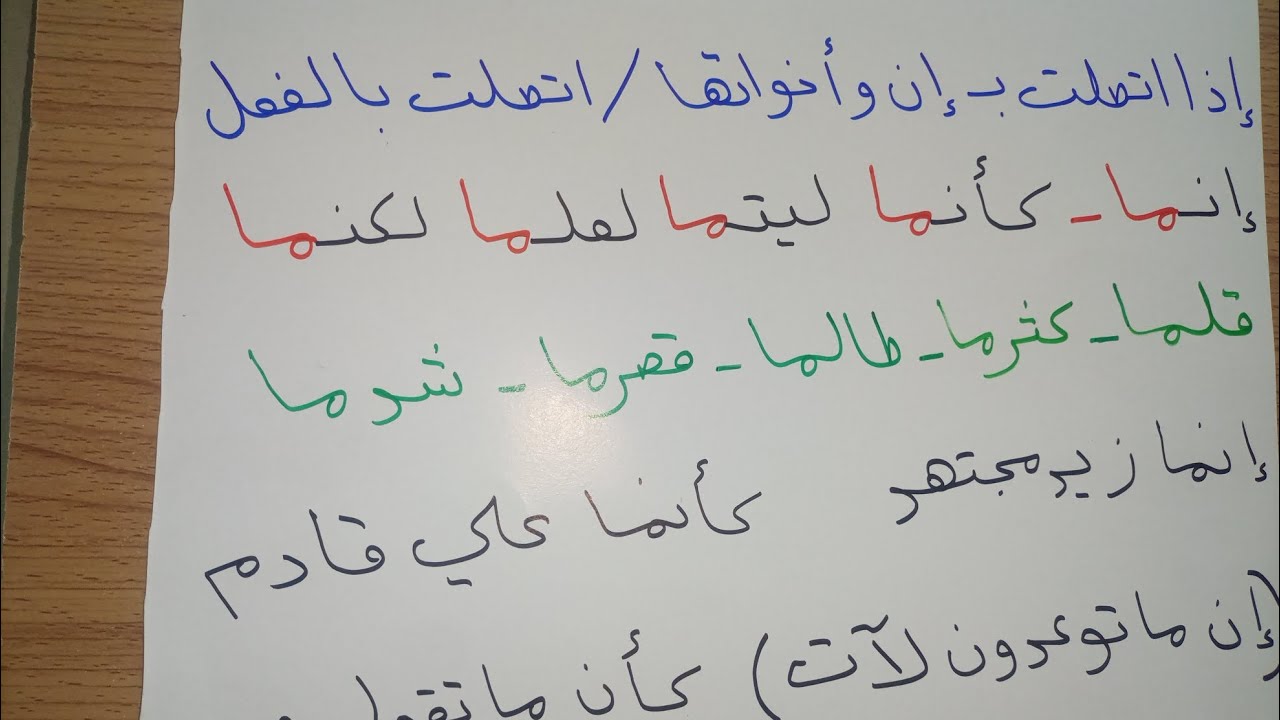 إذا اتصلت بـ إن وأخواتها / اتصلت بالفعل
إنما - كأنما ليتما لعلما لكنما
قلما - كثرما - طالما - قصرما - شدما
إنما زيد مجتهد كأنما علي قادم
(إن ما توعدون لآت) كأن ما